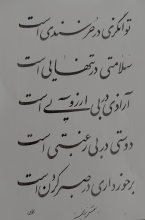 توانگری در خرسندی است
سلامتی در تنهایی است
آزادی در بی آرزویی است
دوستی در بی رغبتی است
برخورداری در صبر کردن است